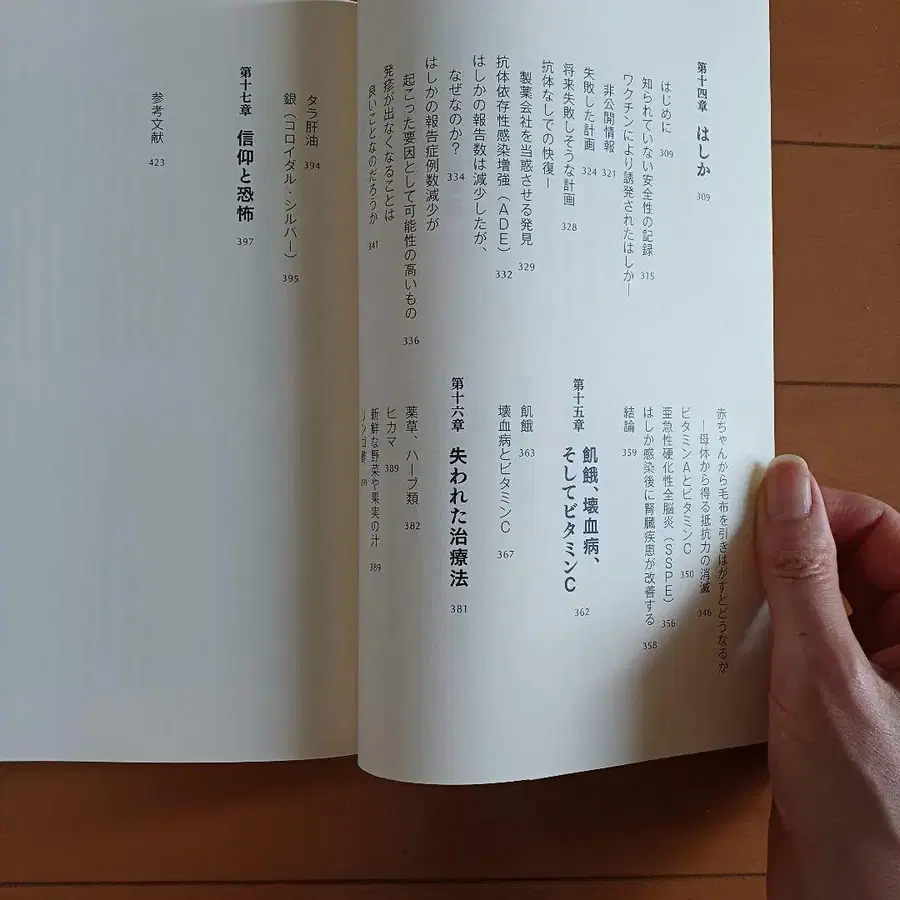 第十四章 はしか 309
はじめに 309
知られていない安全性の記録 315
ワクチンにより誘発されたはしか―
非公開情報 321
失敗した計画 324
将来失敗しそうな計画 328
抗体なしでの快復―
製薬会社を当惑させる発見 329
抗体依存性感染増強(ADE) 332
はしかの報告数は減少したが、
なぜなのか? 334
はしかの報告症例数減少が
起こった要因として可能性の高いもの 336
発疹が出なくなることは
良いことなのだろうか 341
赤ちゃんから毛布を引きはがすとどうなるか
―母体から得る抵抗力の消滅 346
ビタミンAとビタミンC 350
亜急性硬化性全脳炎(SSPE) 356
はしか感染後に腎臓疾患が改善する 358
結論 359
第十五章 飢餓、壊血病、
そしてビタミンC 362
飢餓 363
壊血病とビタミンC 367
第十六章 失われた治療法 381
薬草、ハーブ類 382
ヒカマ 389
新鮮な野菜や果実の汁 389
リンゴ酢
タラ肝油 394
銀(コロイダル・シルバー) 395
第十七章 信仰と恐怖 397
参考文献 423